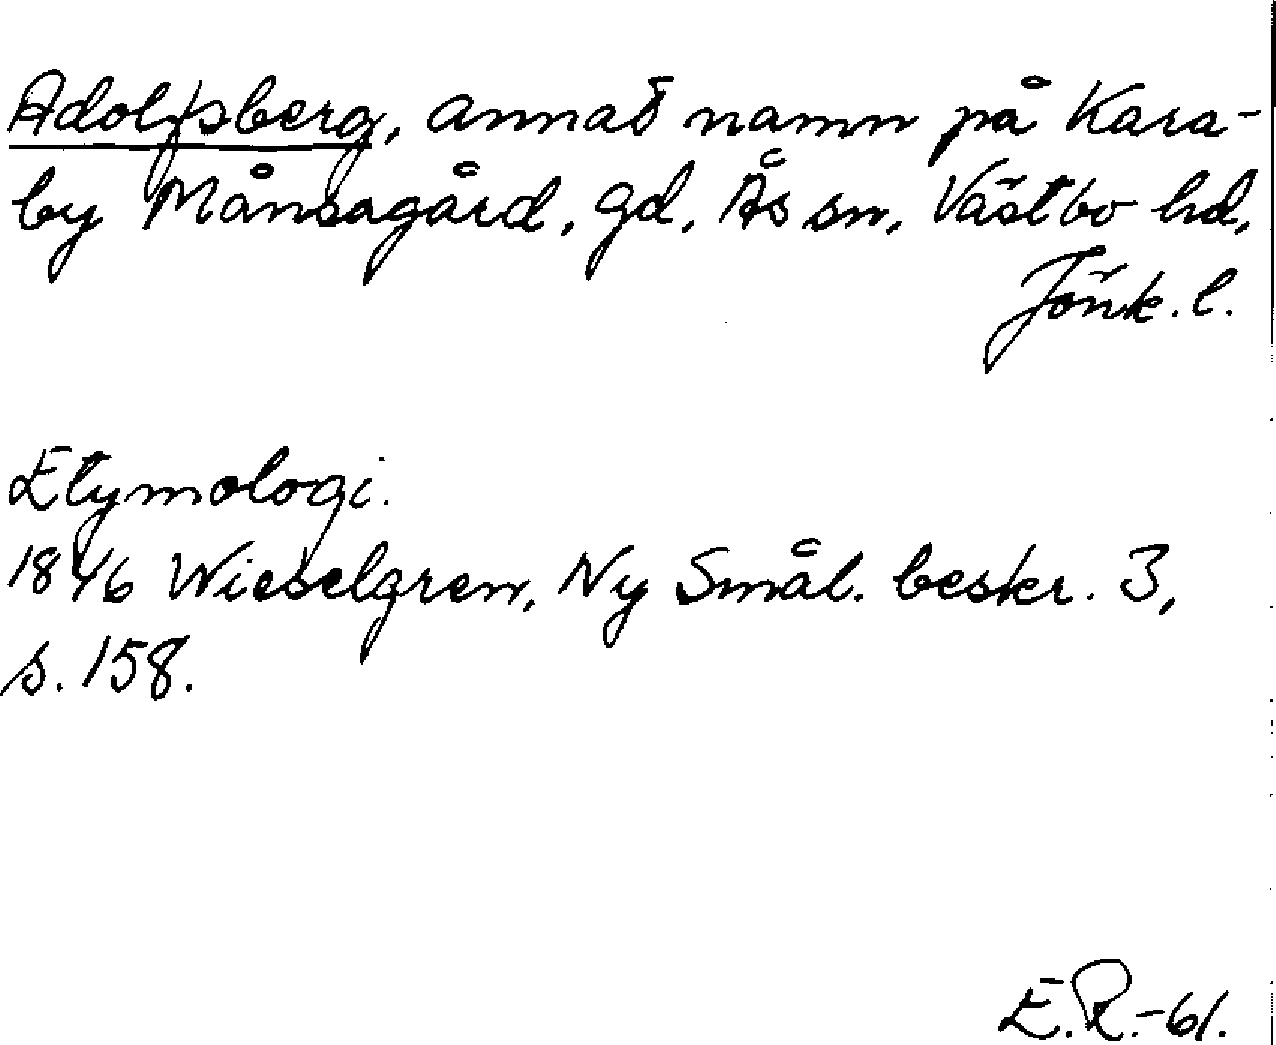 Adolfsberg, annat namn på Kara-
by Månsagård, gd, Ås sn, Västbo hd,
Jönk. l.
Etymologi.
1846 Wieselgren, Ny Smål. beskr. 3,
s. 158.
E.R.-61.